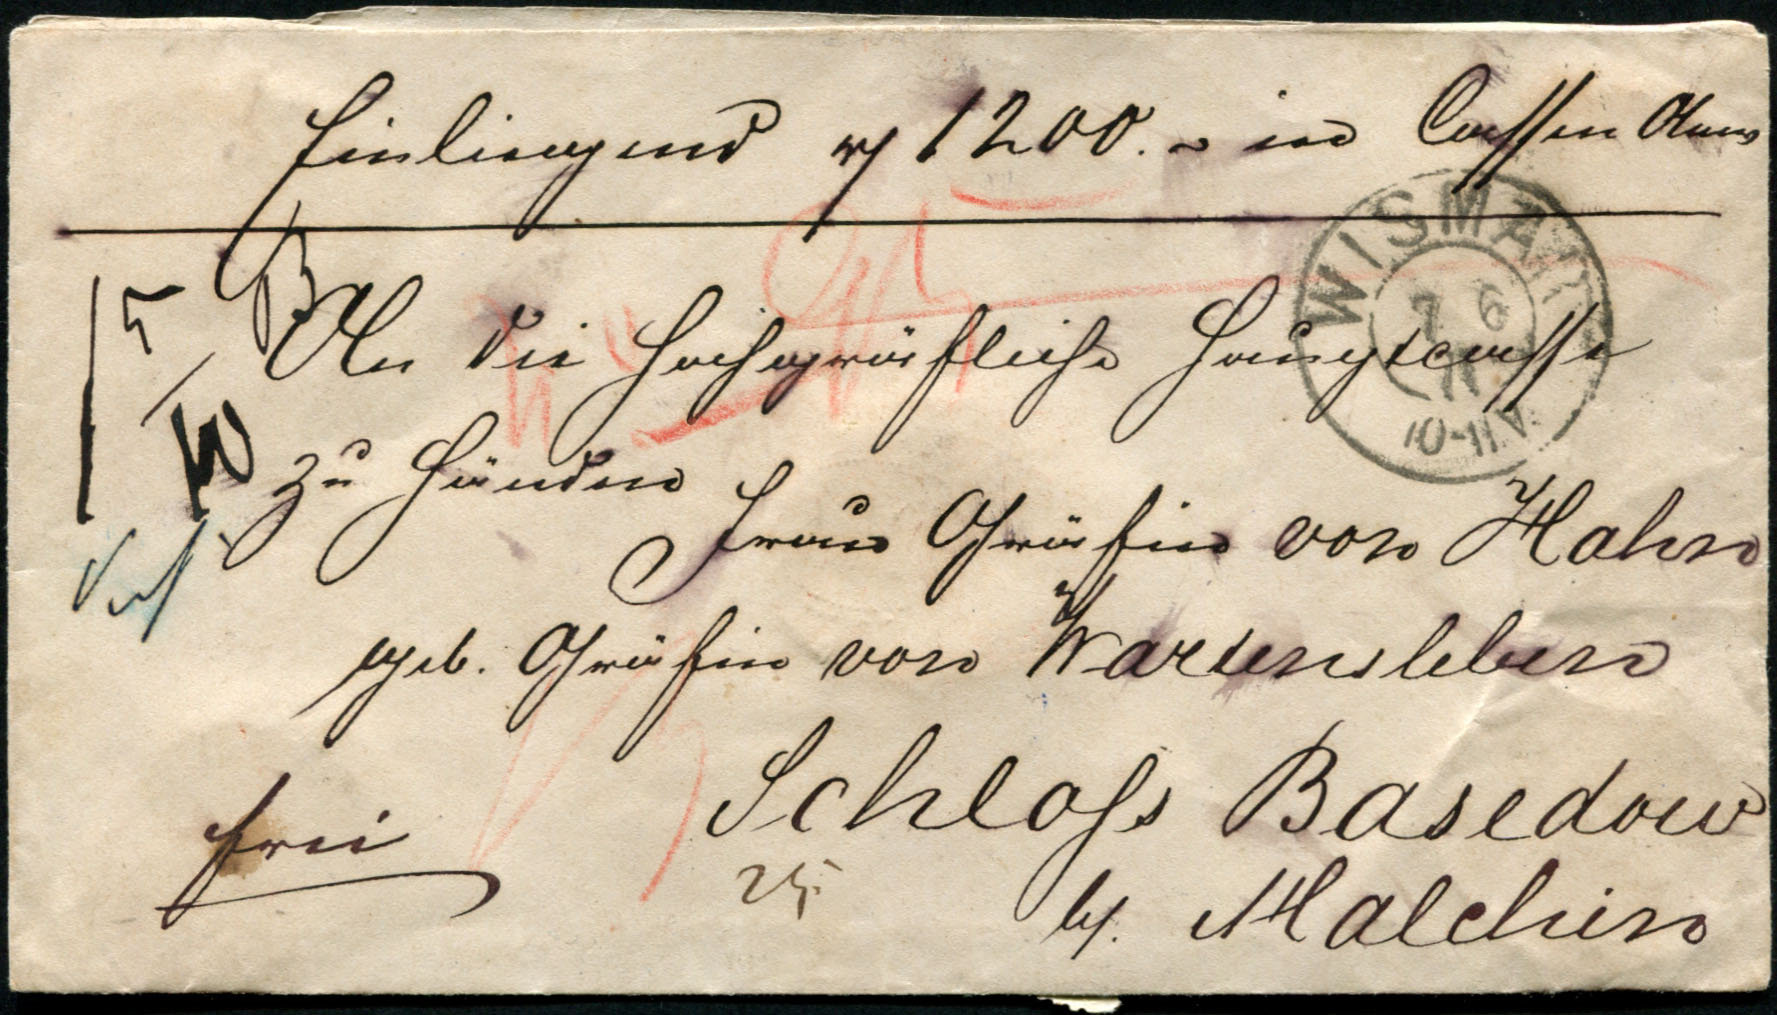 Einliegend rℓ 1200.- in Cassen Anw
WISMAR
7 6
10-11.V.
An die Hochgräfliche Hauptcasse
zu Händen
Frau Gräfin von Hahn
geb. Gräfin von Wartensleben
Schloss Basedow
frei
b/. Malchin